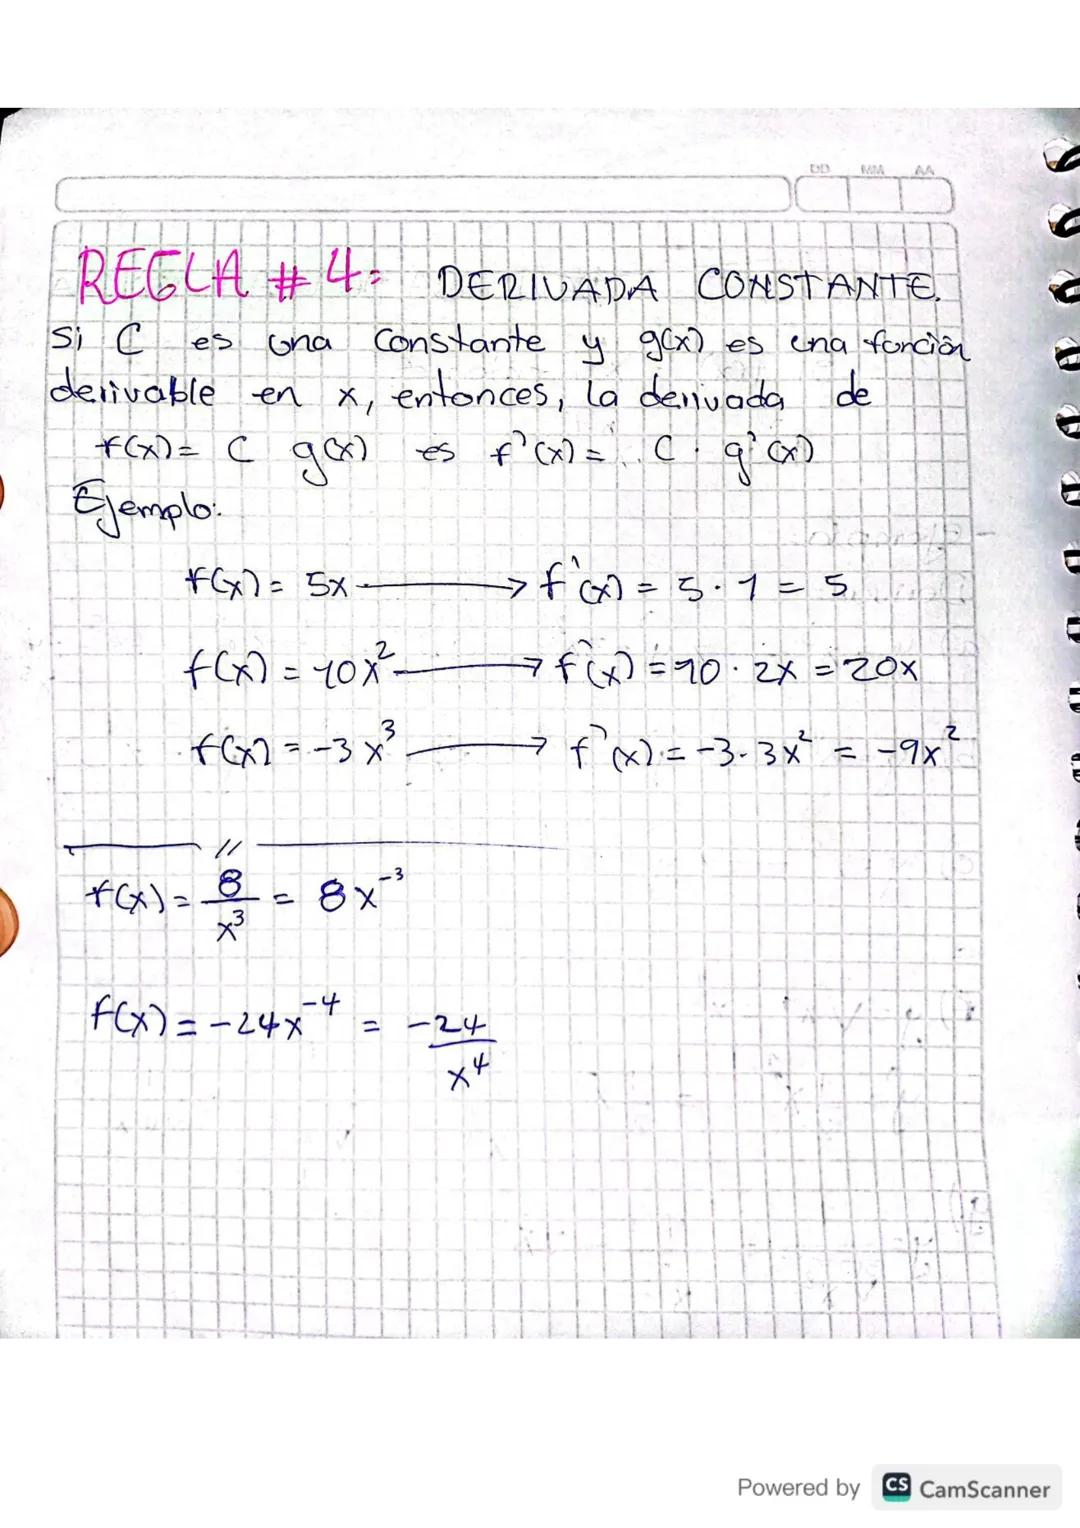 DD MM AA
REGLA # 4: DERIVADA CONSTANTE.
Si C es una constante y g(x) es una función
derivable en x, entonces, la derivada de
f(x) = C g(x) es f'(x) = C · g'(x)
Ejemplo:
f(x) = 5x → f'(x) = 5 · 1 = 5
f(x) = 10x² → f'(x) = 10 · 2x = 20x
f(x) = -3x³ → f'(x) = -3 · 3x² = -9x²
f(x) = 8/x³ = 8x⁻³
f(x) = -24x⁻⁴ = -24/x⁴
Powered by CS CamScanner